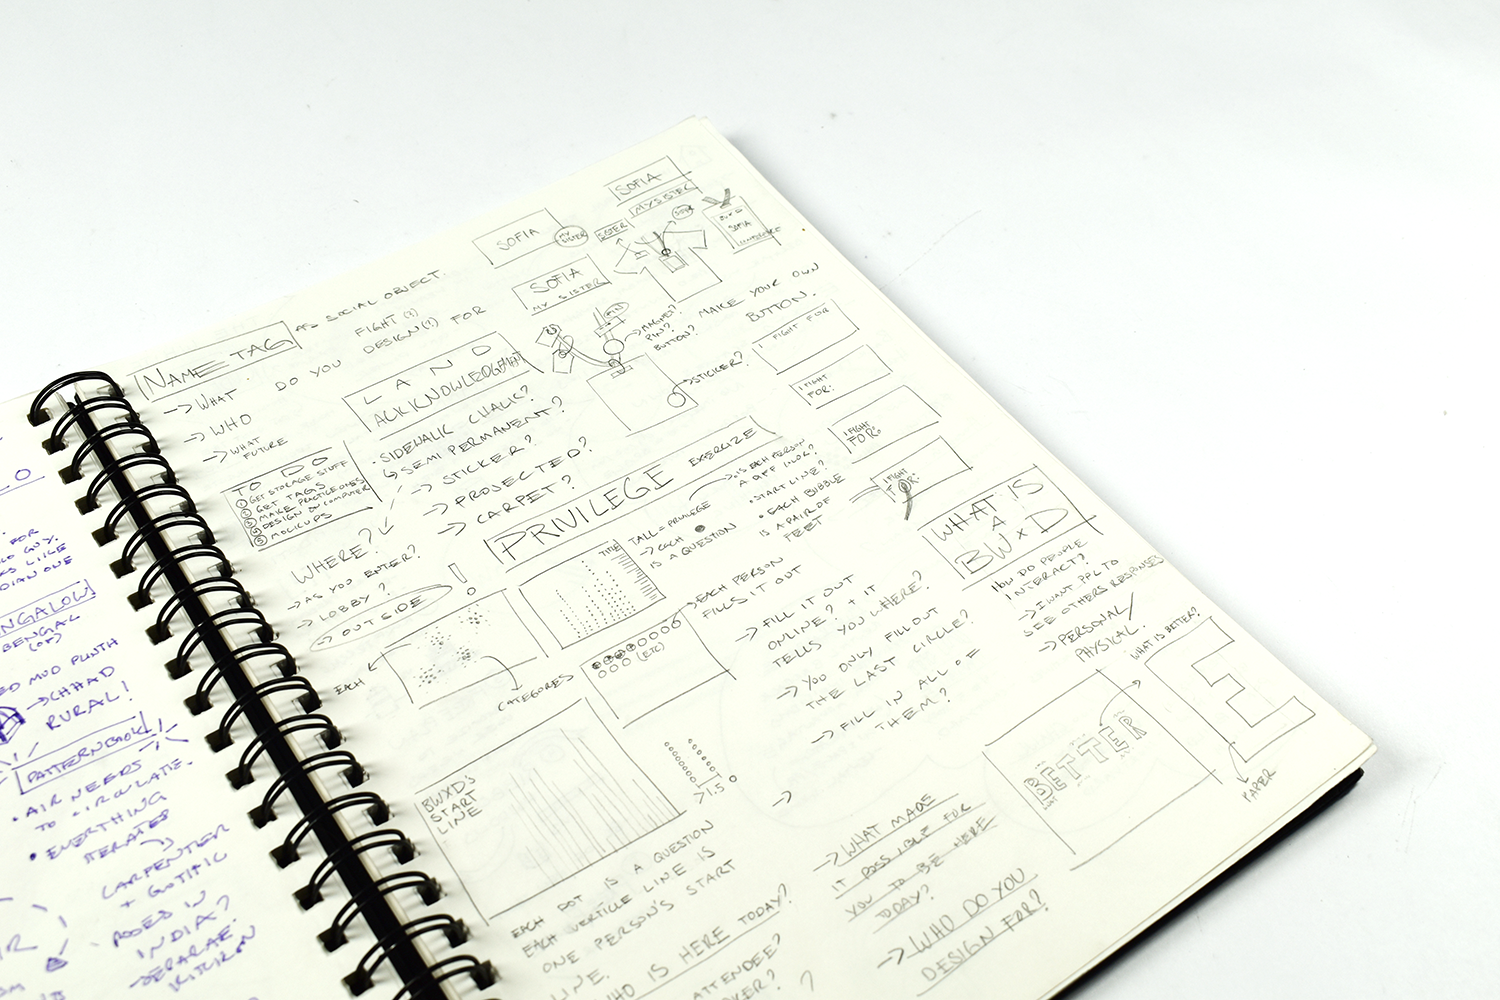 NAME TAG AS SOCIAL OBJECT.
→ WHAT DO YOU FIGHT (?)
DESIGN (?) FOR
→ WHO
→ WHAT
FUTURE
TO DO
① GET STORAGE STUFF
② GET TAGS
③ MAKE PRACTICE ONES
④ DESIGN ON COMPUTER
⑤ MOCKUPS
LAND
ACKKNOWLEDGEMENT
• SIDEWALK CHALK?
↳ SEMI PERMANENT?
→ STICKER?
→ PROJECTED?
→ CARPET?
WHERE?
→ AS YOU ENTER?
→ LOBBY?
→ OUTSIDE
!
SOFIA
MY
SISTER
SOFIA
MY SISTER
SISTER
SOFIA
MY SISTER
SOFIA
→ MAGNET?
PIN?
BUTTON?
→ STICKER?
MAKE YOUR OWN
BUTTON.
I FIGHT FOR
I FIGHT
FOR:
I FIGHT
FOR:
I FIGHT
FOR:
PRIVILEGE EXERCIZE
→ IS EACH PERSON
A DIFF COLOR?
• START LINE?
• EACH BUBBLE
IS A PAIR OF
FEET
TITLE
TALL = PRIVILEGE
→ EACH ●
IS A QUESTION
→ EACH PERSON
FILLS IT OUT
(ETC)
EACH
CATEGORIES
→ FILL IT OUT
ONLINE? + IT
TELLS YOU WHERE?
→ YOU ONLY FILLOUT
THE LAST CIRCLE?
→ FILL IN ALL OF
THEM?
→
BWXD'S
START
LINE
>1.5
EACH DOT IS A QUESTION
EACH VERTICLE LINE IS
ONE PERSON'S START
LINE.
WHO IS HERE TODAY?
ATTENDEE?
?
→ WHAT MADE
IT POSSIBLE FOR
YOU TO BE HERE
TODAY?
→ WHO DO YOU
DESIGN FOR?
WHAT IS
A
BWxD
HOW DO PEOPLE
INTERACT?
→ I WANT PPL TO
SEE OTHERS RESPONSES
→ PERSONAL/
PHYSICAL.
WHAT IS BETTER?
BETTER
E
PAPER
FOR
GUY.
LIKE
ONE
BENGAL
MUD PLINTH
→ CHHAD
RURAL!
PATTERNBOOK
• AIR NEEDS
TO CIRCULATE.
• EVERTHING
ITERATES
CARPENTER
+ GOTHIC
ADDED IN
INDIA?